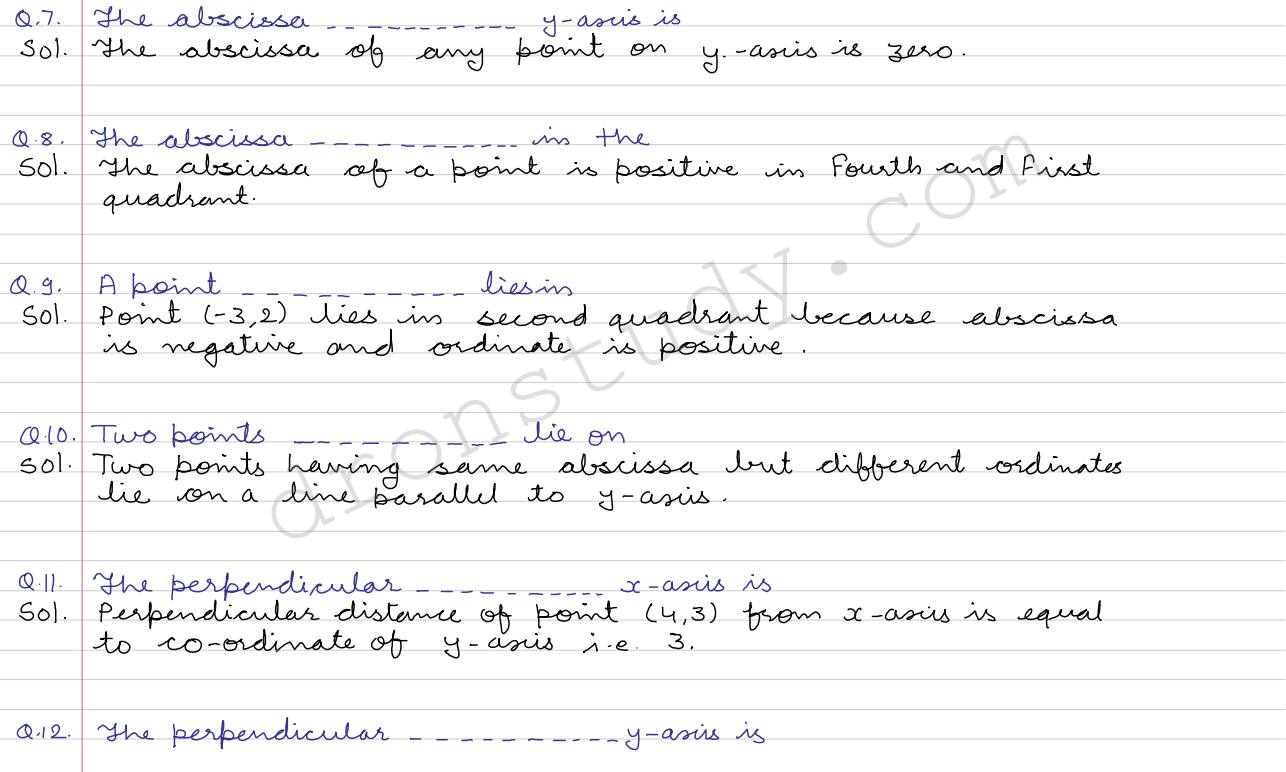 Q.7. The abscissa ----------- y-axis is
Sol. The abscissa of any point on y.-axis is zero.
Q.8. The abscissa ------------ in the
Sol. The abscissa of a point is positive in Fourth and First
quadrant.
Q.9. A point ----------- lies in
Sol. Point (-3,2) lies in second quadrant because abscissa
is negative and ordinate is positive.
Q.10. Two points ---------- lie on
Sol. Two points having same abscissa but different ordinates
lie on a line parallel to y-axis.
Q.11. The perpendicular ----------- x-axis is
Sol. Perpendicular distance of point (4,3) from x-axis is equal
to co-ordinate of y-axis i.e. 3.
Q.12. The perpendicular ----------- y-axis is
dronstudy.com